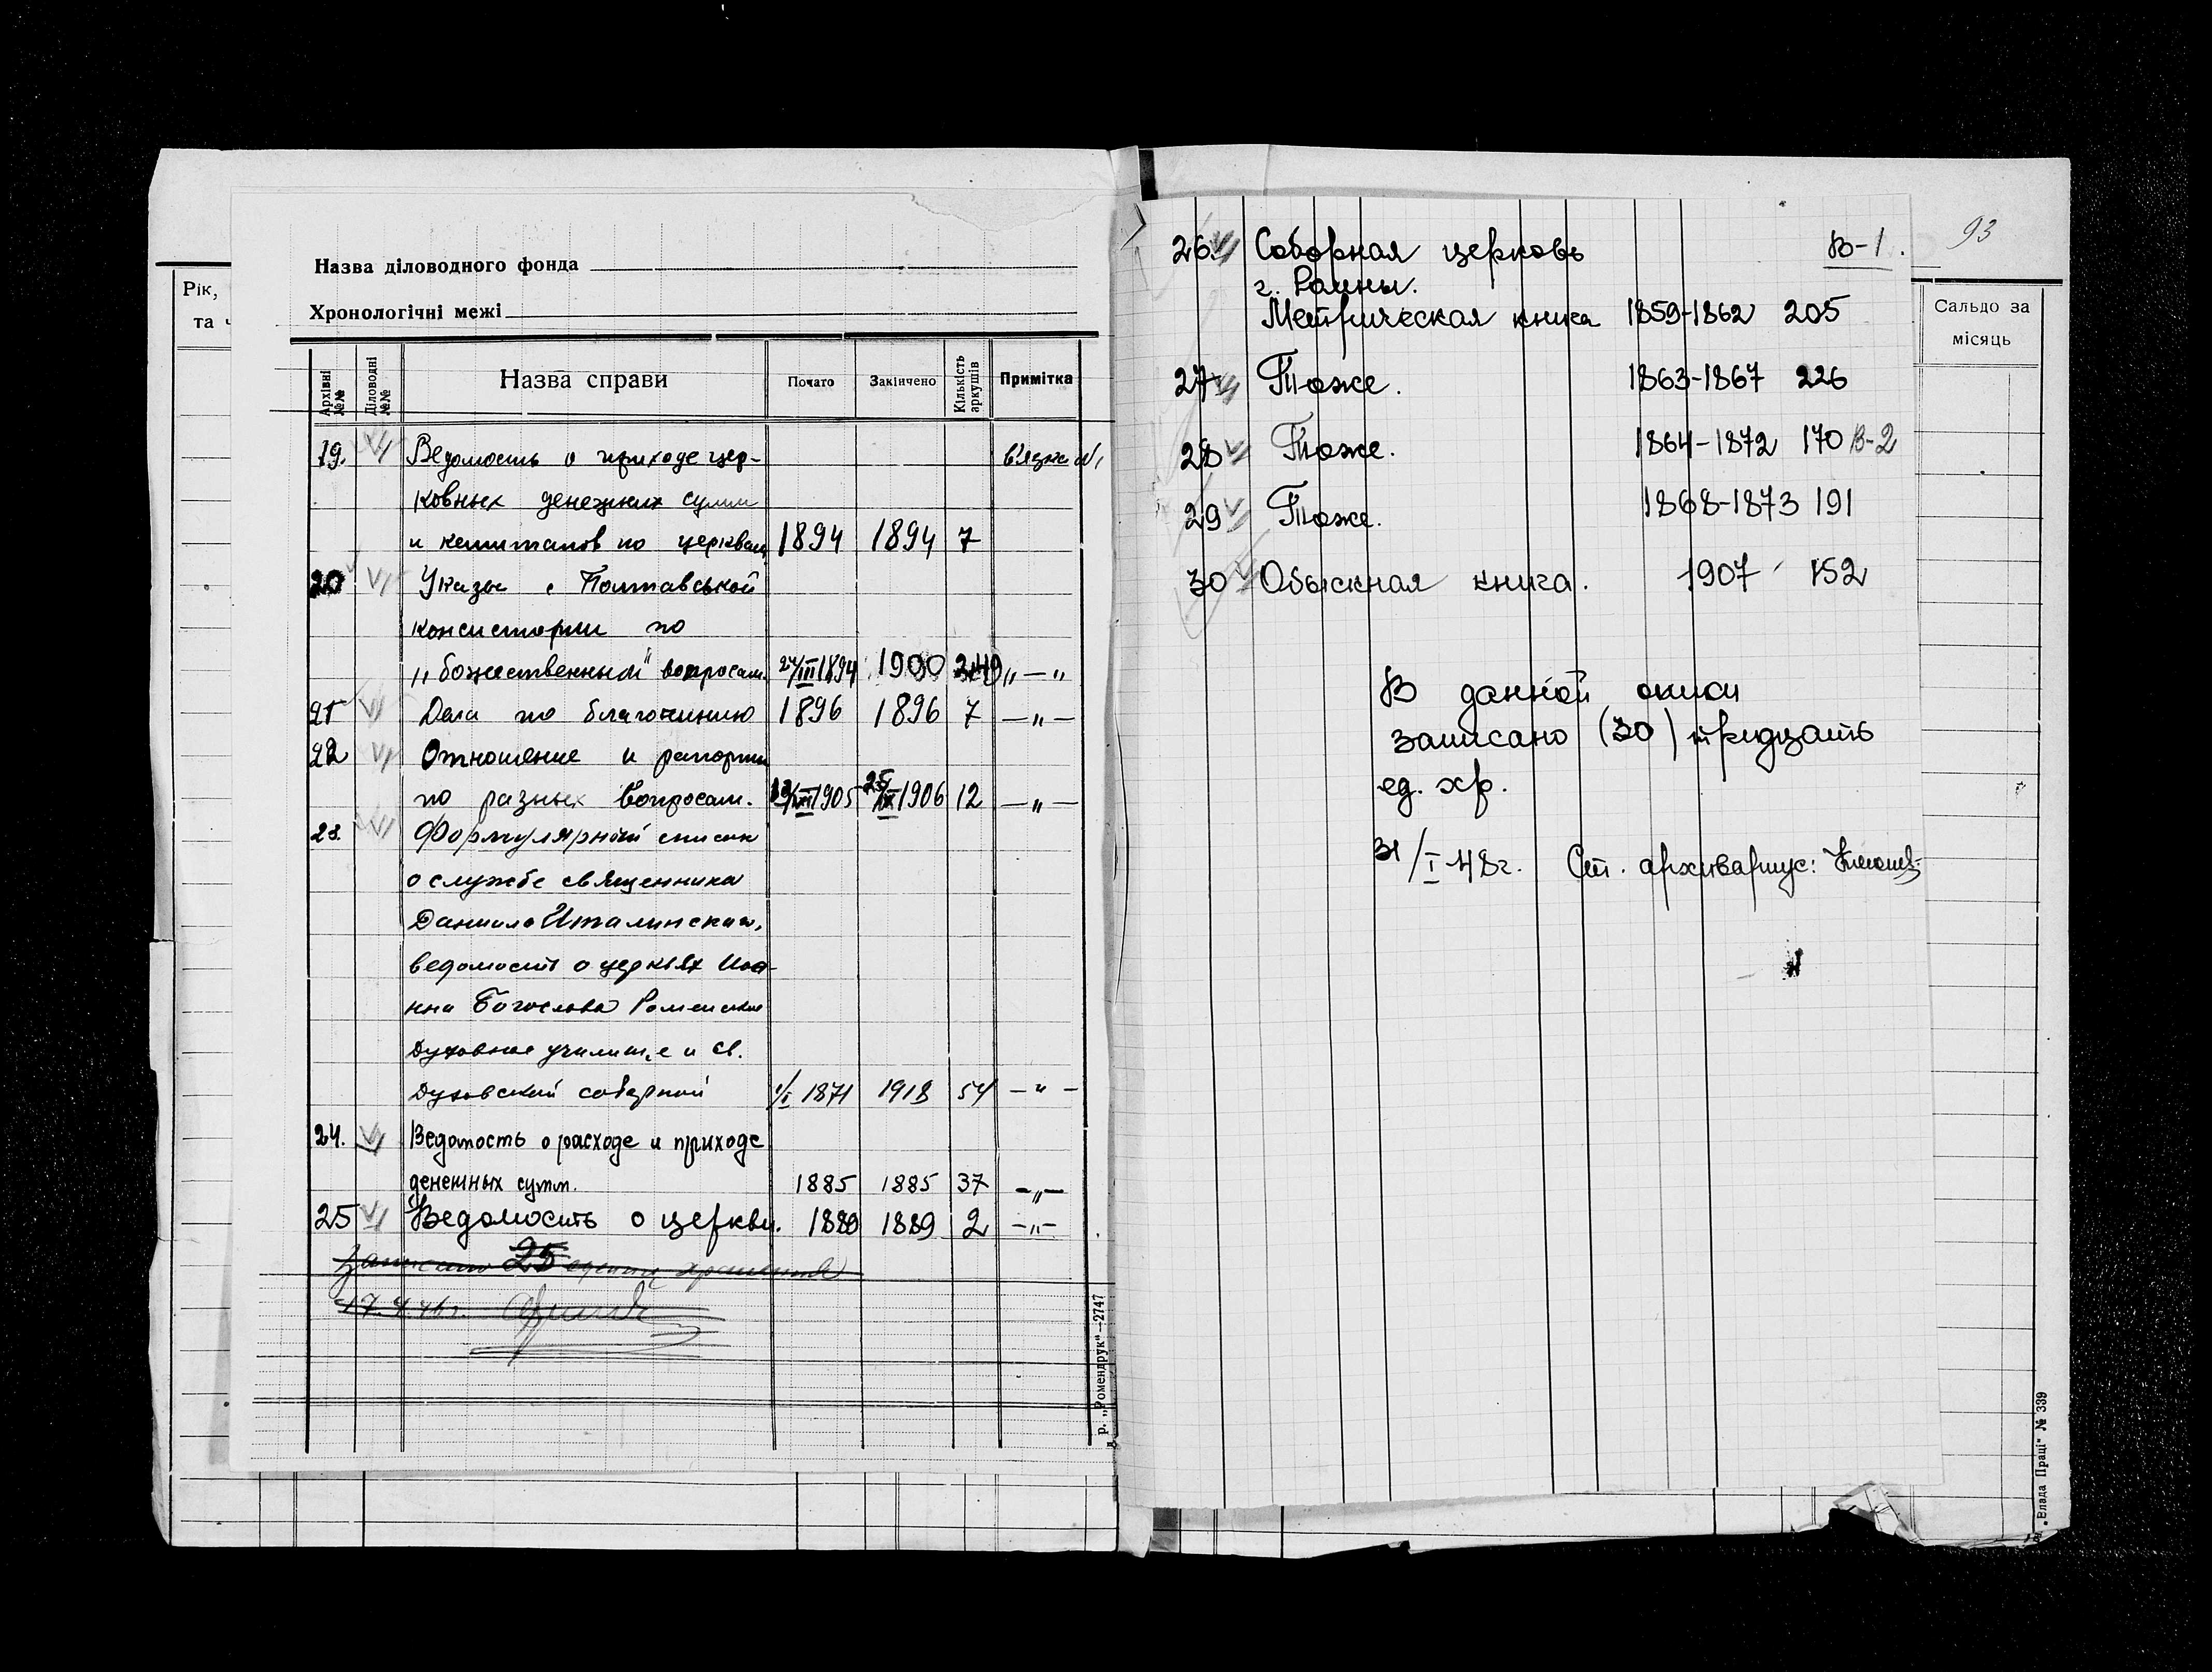 Рік,
та ч
Назва діловодного фонда
Хронологічні межі
Архівні №№ Діловодні №№ Назва справи Почато Закінчено Кількість аркушів Примітка
19. Ведомость о приходе цер-
ковных денежных сумм
и капиталов по церквам 1894 1894 7
20 Указы с Полтавськой
консистории по
„божественным" вопросам. III 1894 1900 249 „—„
21 Дела по благочинию 1896 1896 7 —„—
22 Отношение и рапорты
по разных вопросам. 1905 1906 12 —„—
23. Формулярный список
о службе священника
Даниила Италинскаго,
ведомость о церквях Иоа-
нна Богослова Роменское
Духовное училище и св.
Духовской соборной 1/I 1871 1918 54 —„—
24. Ведомость о расходе и приходе
денежных сумм. 1885 1885 37 —„—
25 Ведомость о церкви. 1889 1889 2 —„—
Записано 25 единиц хранения
р. „Ромендрук"—2747
93
В-1.
26. Соборная церковь
г. Ромны.
Метрическая книга 1859-1862 205
27 Тоже. 1863-1867 226
28 Тоже. 1864-1872 170 В-2
29 Тоже. 1868-1873 191
30 Обыскная книга. 1907 152
В данной описи
записано (30) тридцать
ед. хр.
31/I-48г. Ст. архивариус:
Сальдо за
місяць
„Влада Праці" № 339